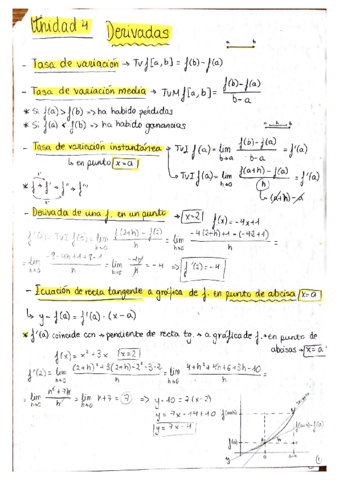 Unidad 4 Derivadas
a b
- Tasa de variación → Tv f[a,b] = f(b)-f(a)
- Tasa de variación media → TvM f[a,b] = f(b)-f(a) / b-a
* Si f(a) > f(b) => ha habido pérdidas
* Si f(a) < f(b) => ha habido ganancias
- Tasa de variación instantánea → TvI f(a) = lim b→a f(b)-f(a) / b-a = f'(a)
↳ en punto x=a
↳ TvI f(a) = lim h→0 f(a+h)-f(a) / h = f'(a)
↳ (a+h)-a
- Derivada de una f. en un punto → x=2 f(x) = -4x+1
f'(2) = TvI f(2) = lim h→0 f(2+h)-f(2) / h = lim h→0 -4(2+h)+1-(-4·2+1) / h =
= lim h→0 -8-4h+1+8-1 / h = lim h→0 -4h / h = -4 => f'(2) = -4
- Ecuación de recta tangente a gráfica de f. en punto de abcisa x=a
↳ y - f(a) = f'(a) · (x-a)
* f'(a) coincide con → pendiente de recta tg. → a gráfica de f. → en punto de
abcisas → x=a
f(x) = x²+3x x=2
f'(2) = lim h→0 (2+h)²+3(2+h)-2²-3·2 / h = lim h→0 4+h²+4h+6+3h-10 / h =
= lim h→0 h²+7h / h = lim h→0 h+7 = 7 => y-10 = 7(x-2)
y = 7x-14+10
y = 7x-4
f(a+h)
f(a+h)-f(a)
f(a)
a a+h